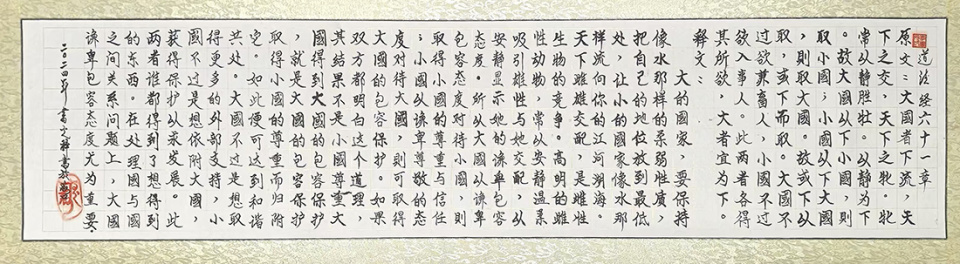 道德经六十一章
原文：大國者下流，天
下之交，天下之牝。牝
常以静勝牡。以静为下
。故大國以下小國，則
取小國；小國以下大國
，則取大國。故或下以
取，或下而取。大國不
过欲兼畜人，小國不过
欲入事人。此两者各得
其所欲，大者宜为下。
释文：
大的國家，要保持
像水那样的柔弱性质，
把自己的地位放到最低
处，让小的國家像水那
样流向你的江河湖海。
天下雌雄交配，是雌性
生物的竞争。高明的雌
性动物，常以安静温柔
吸引雄性与她交配，以
安静显示她的谦卑包容
态度。所以大國以谦卑
包容态度对待小國，則
取得小國的尊重与信任
；小國以谦卑尊敬的态
度对待大國，則可取得
大國的包容保护。如果
双方都明白这个道理，
其结果不是小國尊重大
國得到大國的包容保护
，就是大國的包容保护
取得小國的尊重而归附
。如此便可达到和谐
共处。大國不过是想取
得更多的外部支持，小
國不过是想依附大國，
获得保护以求发展。此
两者谁都得到了想得到
的东西。在处理國与國
之间关系问题上，大國
谦卑包容态度尤为重要.
二〇二四年